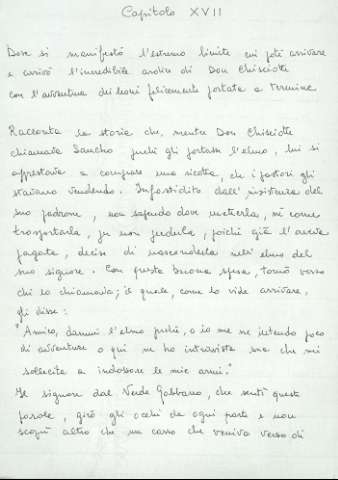 Capitolo XVII
Dove si manifestò l'estremo limite cui poté arrivare
e arrivò l'incredibile ardire di Don Chisciotte
con l'avventura dei leoni felicemente portata a termine
Racconta la storia che, mentre Don Chisciotte
chiamava Sancho perché gli portasse l'elmo, lui si
apprestava a comprare una ricotta, che i pastori gli
stavano vendendo. Infastidito dall'insistenza del
suo padrone, non sapendo dove metterla, né come
trasportarla, per non perderla, poiché già l'aveva
pagata, decise di nasconderla nell'elmo del
suo signore. Con questa buona spesa, tornò verso
chi lo chiamava; il quale, come lo vide arrivare,
gli disse:
"Amico, dammi l'elmo perché, o io me ne intendo poco
di avventure o qui ne ho intravista una che mi
sollecita a indossare le mie armi."
Il signore dal Verde Gabbano, che sentì queste
parole, girò gli occhi da ogni parte e non
scoprì altro che un carro che veniva verso di